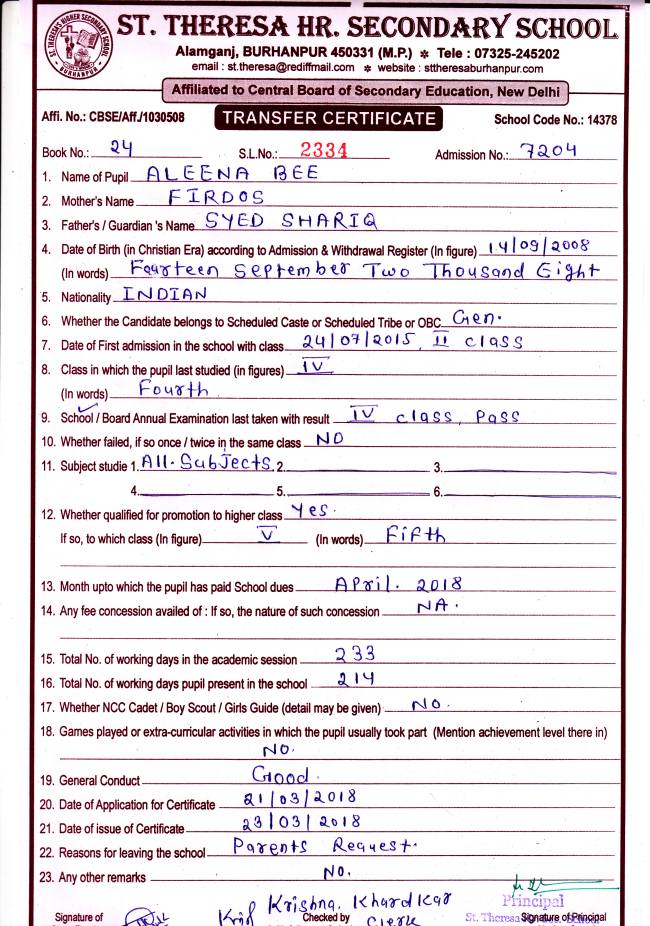 ST. THERESA HR. SECONDARY SCHOOL
Alamganj, BURHANPUR 450331 (M.P.) * Tele : 07325-245202
email : st.theresa@rediffmail.com * website : sttheresaburhanpur.com
Affiliated to Central Board of Secondary Education, New Delhi
Affi. No.: CBSE/Aff./1030508 TRANSFER CERTIFICATE School Code No.: 14378
Book No.: 24 S.L.No.: 2334 Admission No.: 7204
1. Name of Pupil ALEENA BEE
2. Mother's Name FIRDOS
3. Father's / Guardian 's Name SYED SHARIQ
4. Date of Birth (in Christian Era) according to Admission & Withdrawal Register (In figure) 14/09/2008
(In words) Fourteen September Two Thousand Eight
5. Nationality INDIAN
6. Whether the Candidate belongs to Scheduled Caste or Scheduled Tribe or OBC Gen.
7. Date of First admission in the school with class 24/07/2015, II class
8. Class in which the pupil last studied (in figures) IV
(In words) Fourth
9. School / Board Annual Examination last taken with result IV class, Pass
10. Whether failed, if so once / twice in the same class NO
11. Subject studie 1. All. Subjects 2. 3.
4. 5. 6.
12. Whether qualified for promotion to higher class Yes.
If so, to which class (In figure) V (In words) Fifth
13. Month upto which the pupil has paid School dues April. 2018
14. Any fee concession availed of : If so, the nature of such concession NA.
15. Total No. of working days in the academic session 233
16. Total No. of working days pupil present in the school 214
17. Whether NCC Cadet / Boy Scout / Girls Guide (detail may be given) NO.
18. Games played or extra-curricular activities in which the pupil usually took part (Mention achievement level there in)
NO.
19. General Conduct Good.
20. Date of Application for Certificate 21/03/2018
21. Date of issue of Certificate 23/03/2018
22. Reasons for leaving the school Parents Request.
23. Any other remarks NO.
Krishna. Khardkar Principal
Signature of Checked by Clerk St. Theresa Signature of Principal